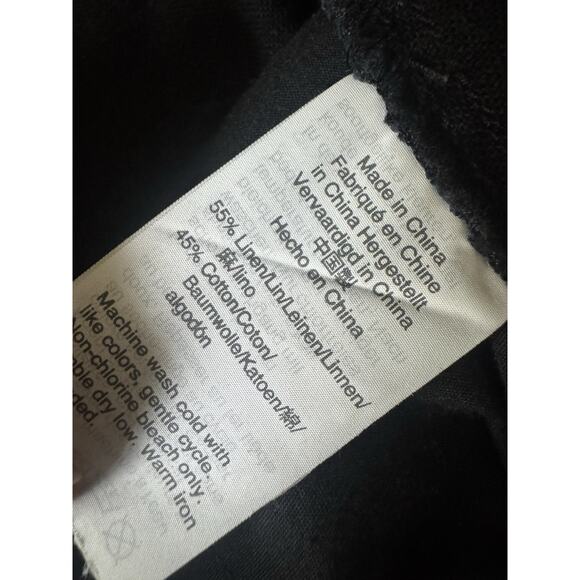 Made in China
Fabriqué en Chine
in China Hergestellt
Vervaardigd in China
中国製
Hecho en China
55% Linen/Lin/Leinen/Linnen/
麻/lino
45% Cotton/Coton/
Baumwolle/Katoen/綿/
algodón
Machine wash cold with
like colors, gentle cycle.
Non-chlorine bleach only.
dry low. Warm iron